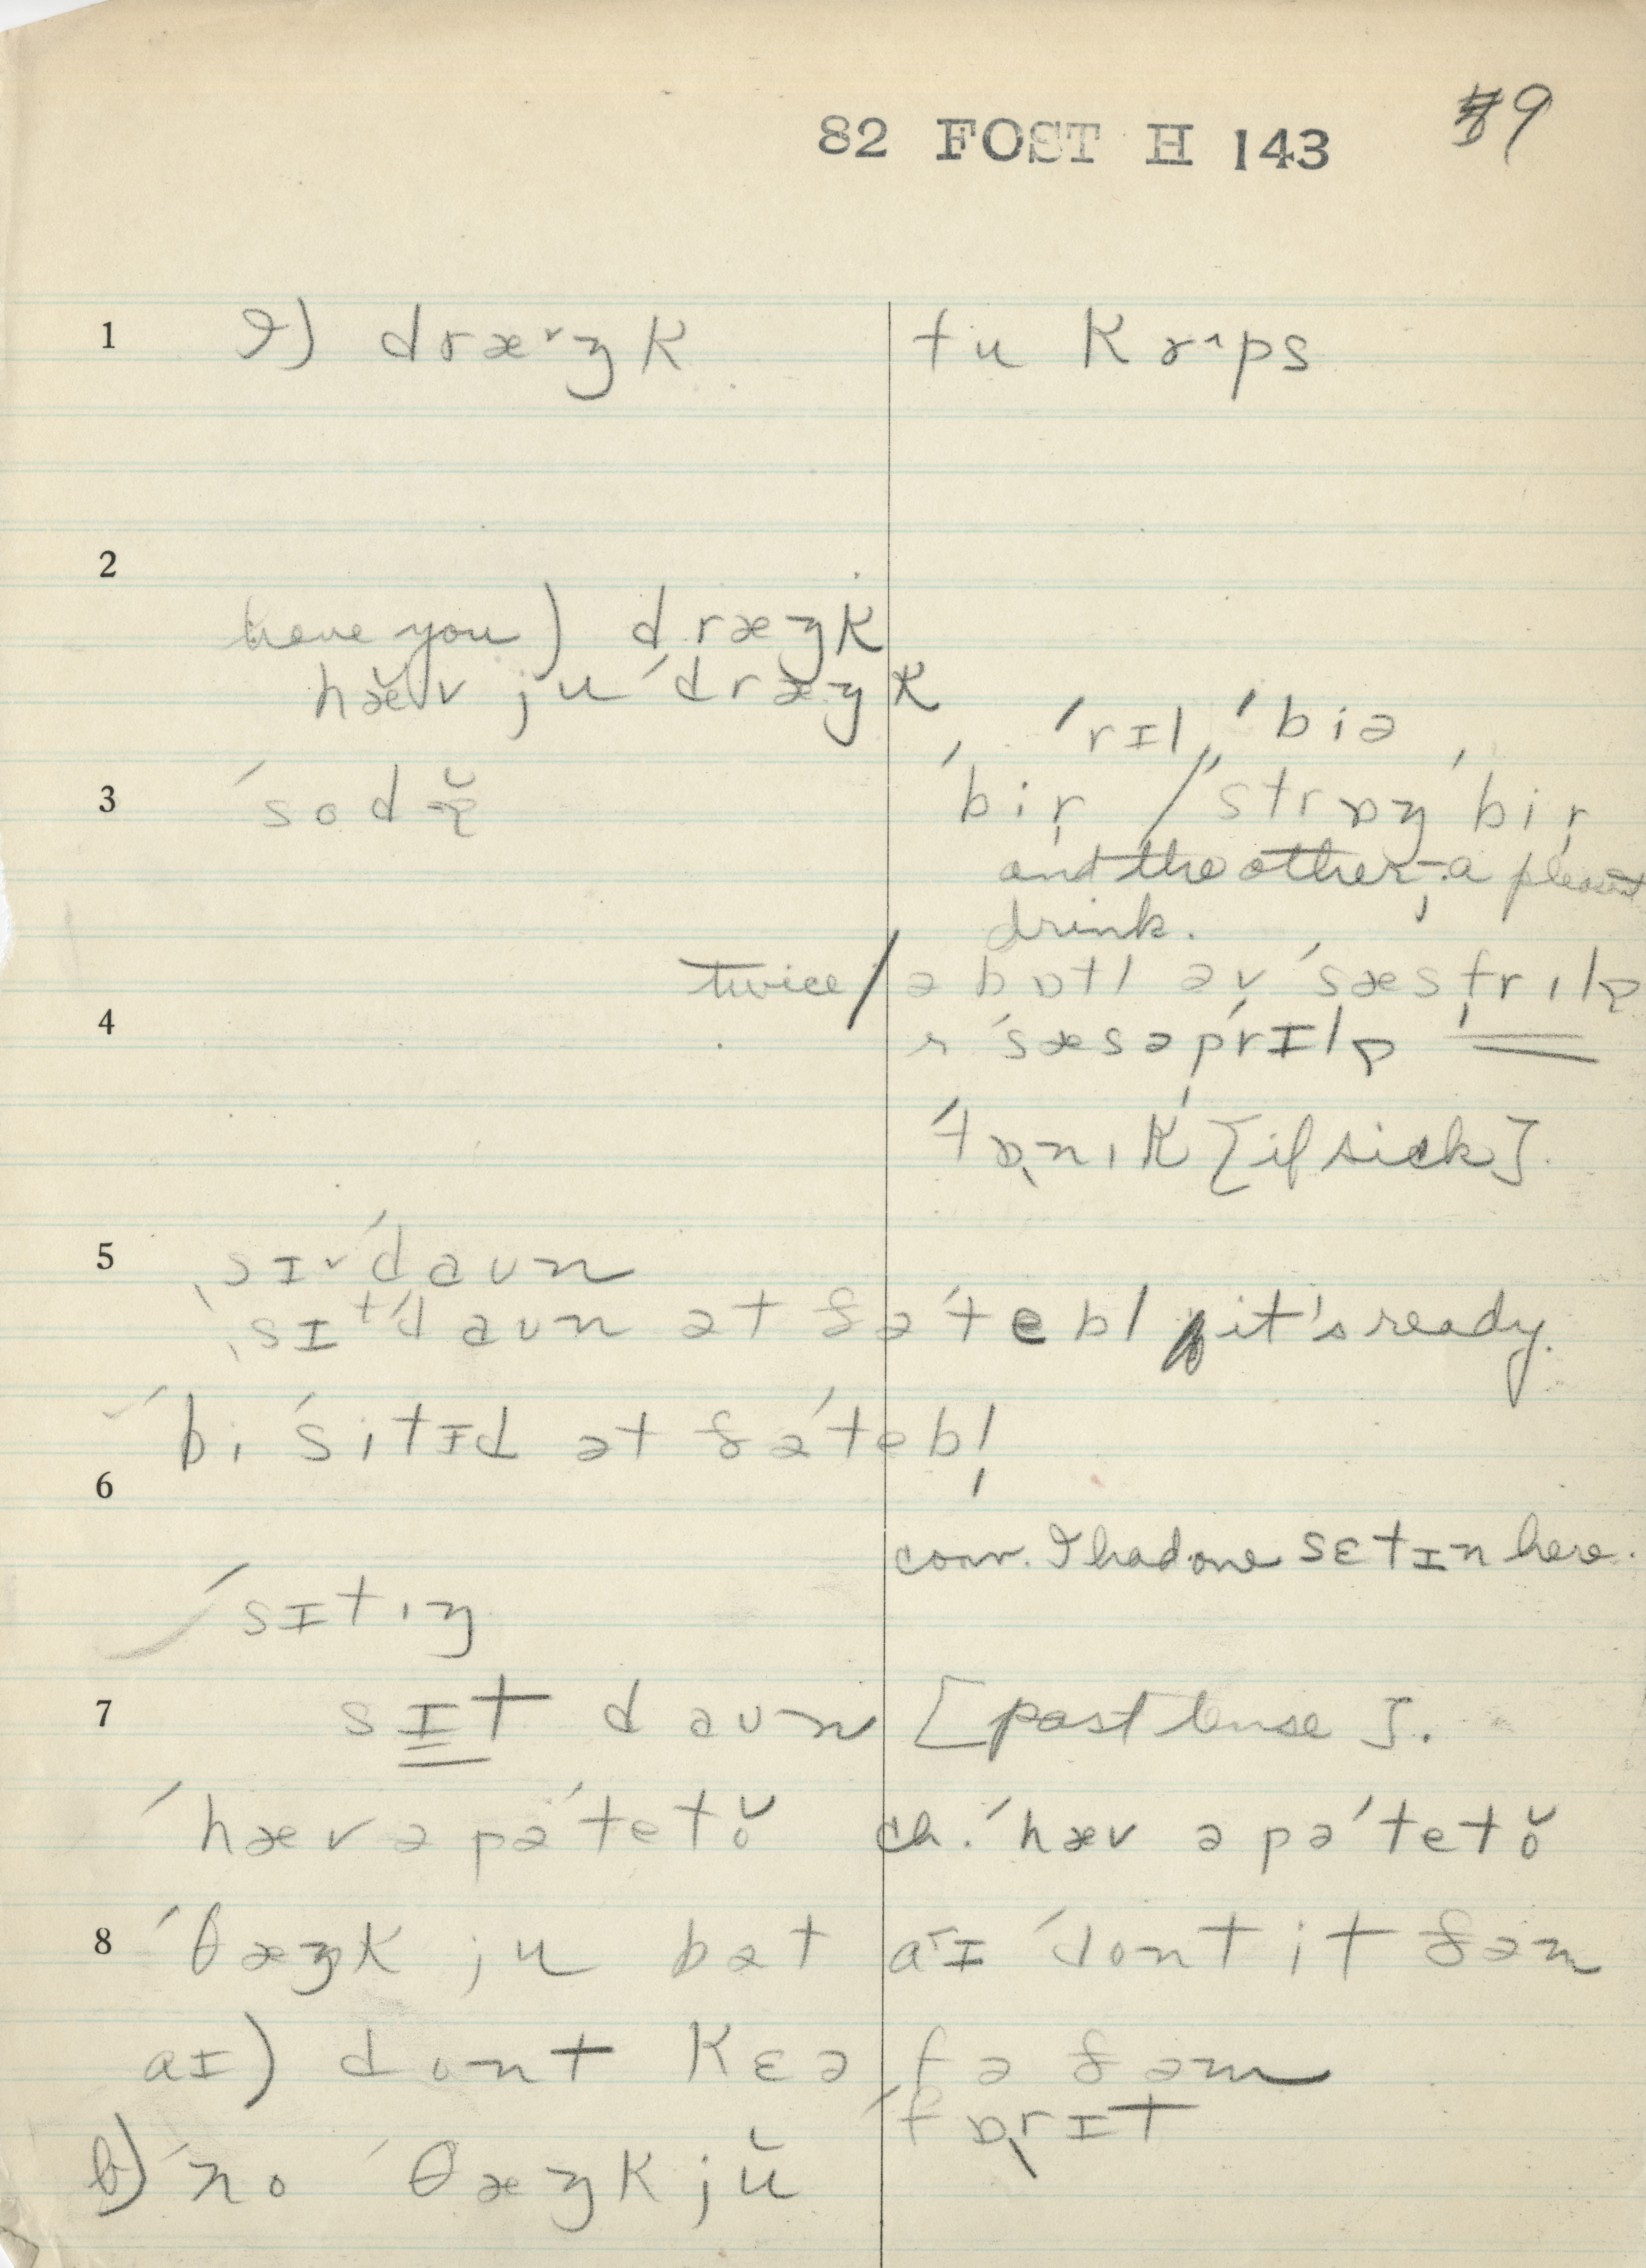 82 FOST H 143 #9
1 I) dræ˅ŋk tu kr^ps
2
have you) dræŋk
hæ̆v ju ˈdræŋk
ˈrɪl, ˈbiə
3 ˈsodɐ̆ ˈbir̩ / ˈstrɒŋ ˈbir̩
and the other – a pleasant
drink.
twice / ə bɒtl əv ˈsæsfrɪlɐ
4 r ˈsæsəprɪlɐ
ˈtɒnɪk [if sick].
5 ˌsɪ˅ˈdaʊn
ˌsɪtˈdaʊn ət ðəˈtebl it's ready.
ˈbi ˈsitɪd ət ðəˈtebl̩
6
conv. I had one sɛt ɪn here.
ˈsɪtɪŋ
7 sɪt daʊn [past tense].
ˈhæv ə pəˈtetŏ ch. ˈhæv ə pəˈtetŏ
8 ˈθæŋk ju bət aɪ ˈdont it ðəm
aɪ) dont kɛə fə ðəm
ˈfɒrɪt
b) ˈno ˈθæŋk jŭ